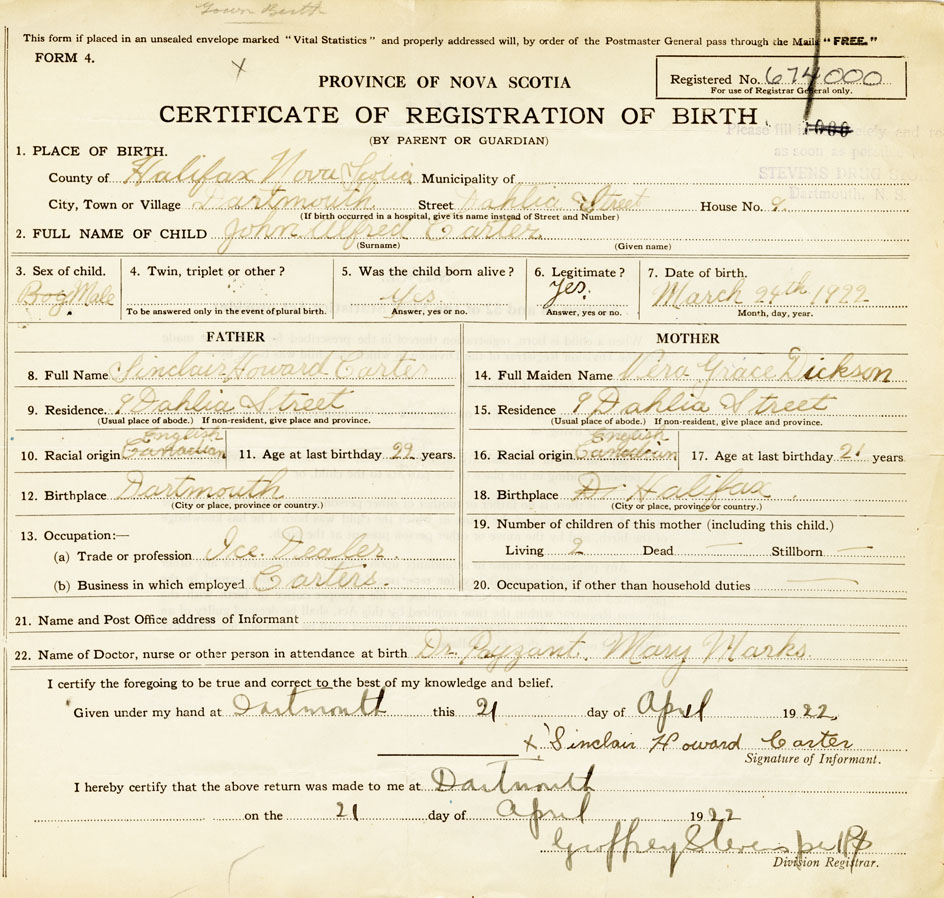 Town Birth
This form if placed in an unsealed envelope marked "Vital Statistics" and properly addressed will, by order of the Postmaster General pass through the Mails "FREE."
FORM 4.
x
PROVINCE OF NOVA SCOTIA
Registered No. 674000
For use of Registrar General only.
CERTIFICATE OF REGISTRATION OF BIRTH
(BY PARENT OR GUARDIAN)
Please fill in
as soon as possible
STEVENS DRUG STORE
Dartmouth, N. S.
1. PLACE OF BIRTH.
County of Halifax Nova Scotia Municipality of
City, Town or Village Dartmouth Street Dahlia Street House No. 9.
(If birth occurred in a hospital, give its name instead of Street and Number)
2. FULL NAME OF CHILD John Alfred Carter
(Surname) (Given name)
3. Sex of child. 4. Twin, triplet or other? 5. Was the child born alive? 6. Legitimate? 7. Date of birth.
Boy Male Yes Yes. March 24th 1922
To be answered only in the event of plural birth. Answer, yes or no. Answer, yes or no. Month, day, year.
FATHER
8. Full Name Sinclair Howard Carter
9. Residence. 9 Dahlia Street
(Usual place of abode.) If non-resident, give place and province.
English
10. Racial origin Canadian 11. Age at last birthday 29 years.
12. Birthplace Dartmouth
(City or place, province or country.)
13. Occupation:—
(a) Trade or profession Ice Dealer.
(b) Business in which employed Carters.
MOTHER
14. Full Maiden Name Vera Grace Dickson
15. Residence 9 Dahlia Street
(Usual place of abode.) If non-resident, give place and province.
English
16. Racial origin Canadian 17. Age at last birthday 21 years
18. Birthplace D Halifax.
(City or place, province or country.)
19. Number of children of this mother (including this child.)
Living 2 Dead — Stillborn —
20. Occupation, if other than household duties —
21. Name and Post Office address of Informant
22. Name of Doctor, nurse or other person in attendance at birth Dr. Payzant. Mary Marks.
I certify the foregoing to be true and correct to the best of my knowledge and belief.
Given under my hand at Dartmouth this 21 day of April 1922.
x Sinclair Howard Carter
Signature of Informant.
I hereby certify that the above return was made to me at Dartmouth
on the 21 day of April 1922
Geoffrey Stevens per
Division Registrar.